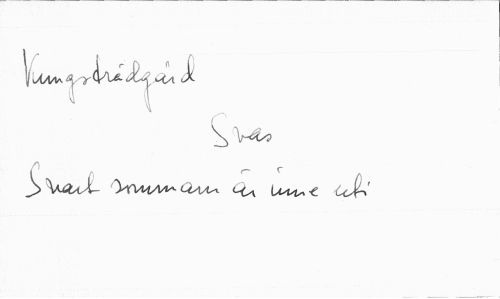 Kungsträdgård
Svas
Svart sommarn är inne uti